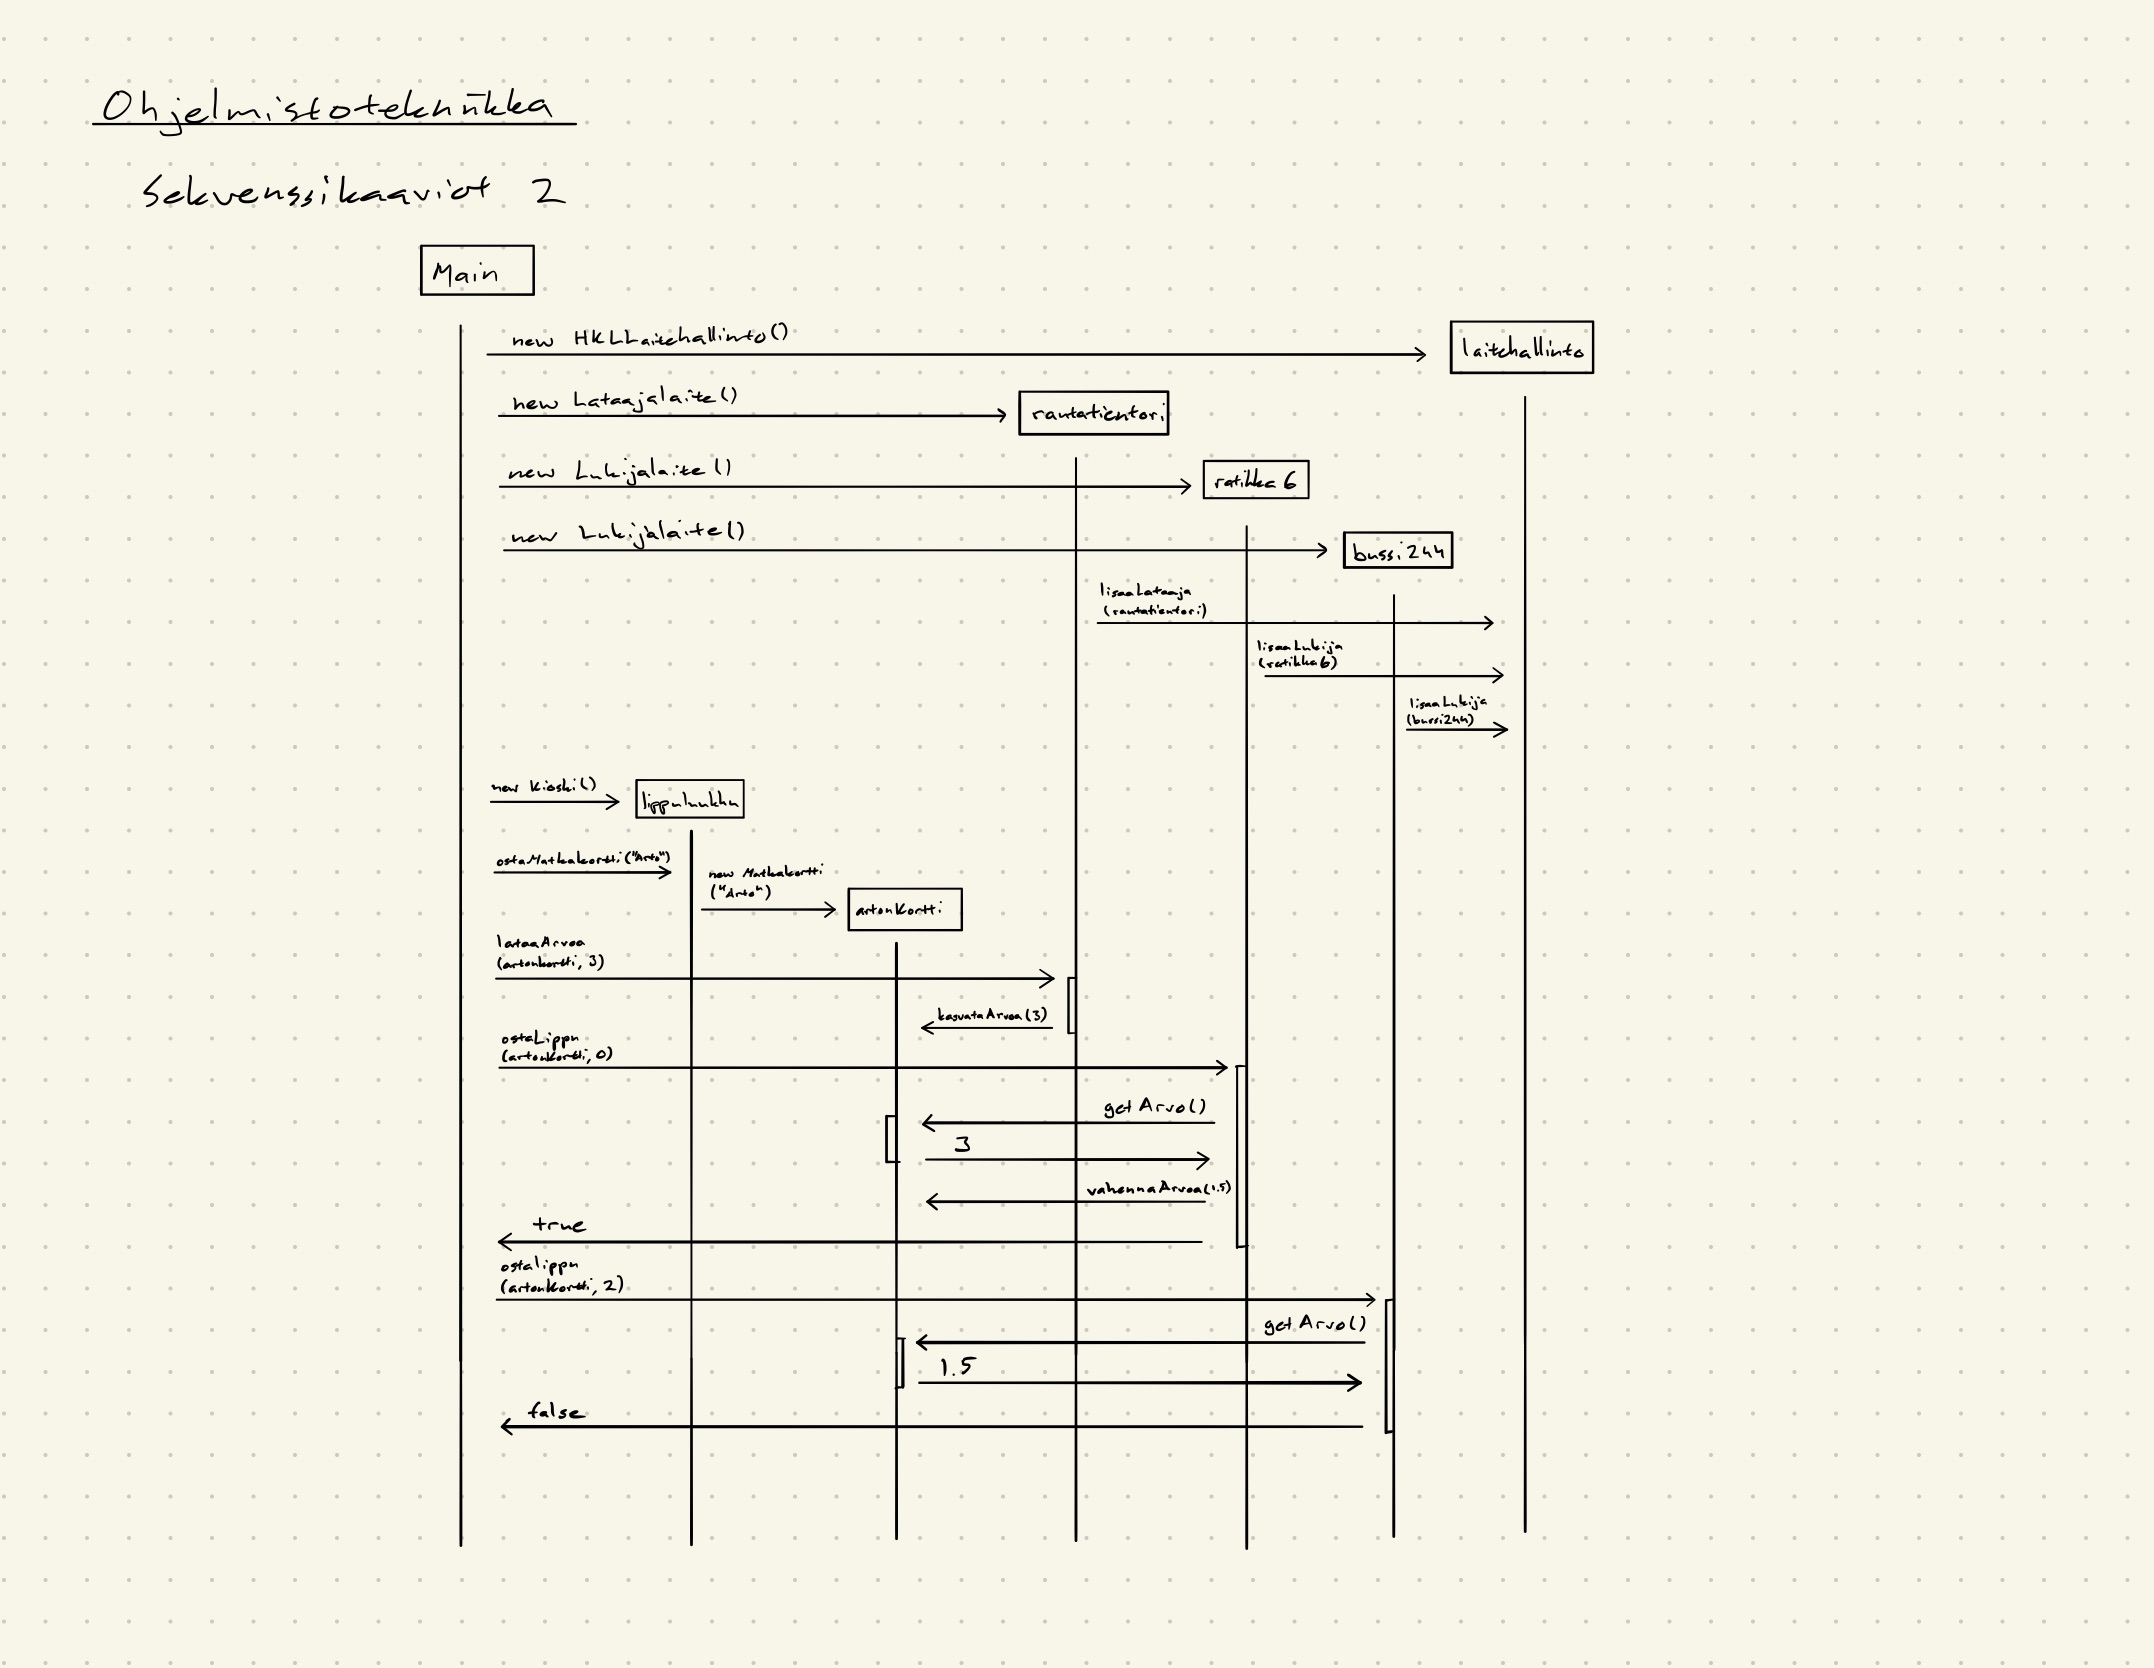 Ohjelmistotekniikka
Sekvenssikaaviot 2
Main
new HKLLaitehallinto()
laitehallinto
new Lataajalaite()
rautatientori
new Lukijalaite()
ratikka6
new Lukijalaite()
bussi244
lisaaLataaja
(rautatientori)
lisaaLukija
(ratikka6)
lisaaLukija
(bussi244)
new Kioski()
lippuluukku
ostaMatkakortti("Arto")
new Matkakortti
("Arto")
artonKortti
lataaArvoa
(artonkortti, 3)
kasvataArvoa(3)
ostaLippu
(artonKortti, 0)
getArvo()
3
vahennaArvoa(1.5)
true
ostalippu
(artonKortti, 2)
getArvo()
1.5
false